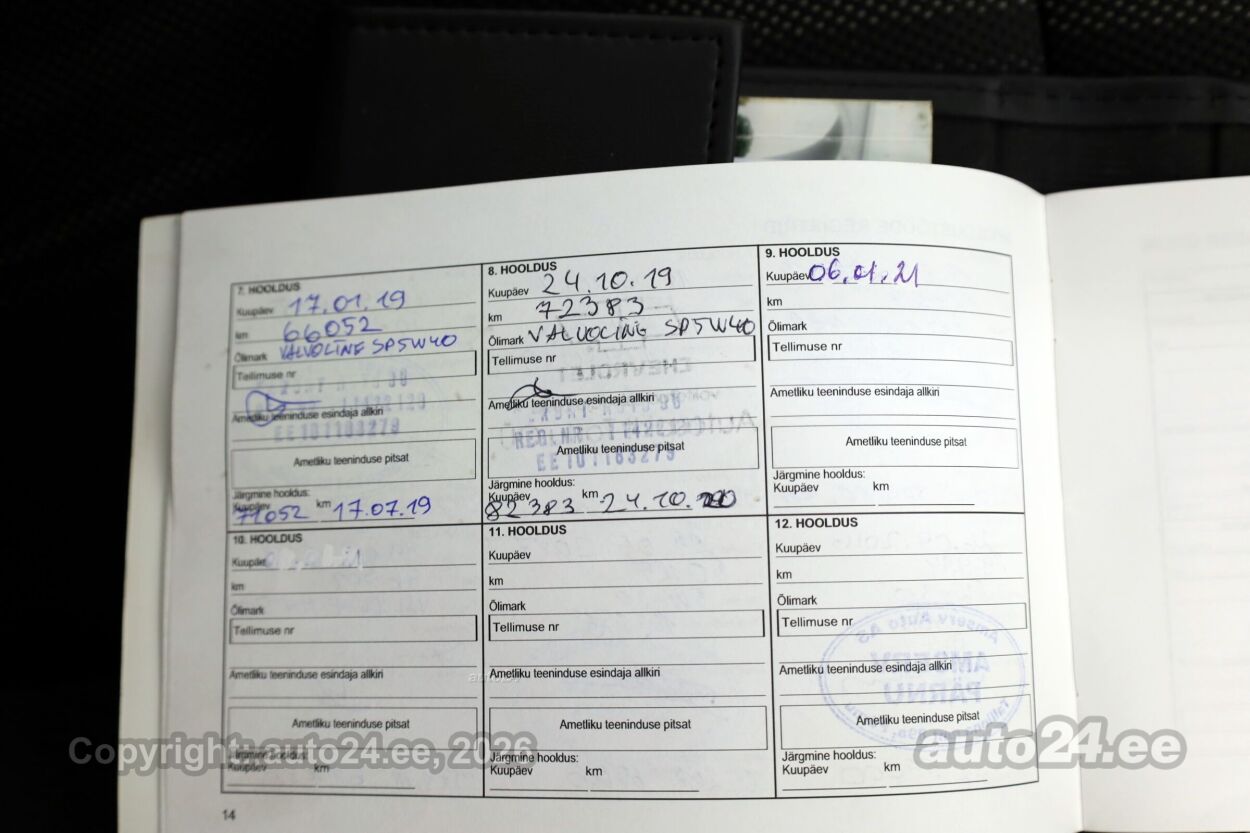 7. HOOLDUS
Kuupäev 17.01.19
km 66052
Õlimark VALVOLINE SP5W40
Tellimuse nr
Ametliku teeninduse esindaja allkiri
EE101163279
Ametliku teeninduse pitsat
Järgmine hooldus:
Kuupäev 71052 km 17.07.19
8. HOOLDUS
Kuupäev 24.10.19
km 72383
Õlimark VALVOLINE SP5W40
Tellimuse nr
CHEVROLET
Ametliku teeninduse esindaja allkiri
EE101163279
Ametliku teeninduse pitsat
Järgmine hooldus:
Kuupäev 82383 km 24.10.20
9. HOOLDUS
Kuupäev 06.01.21
km
Õlimark
Tellimuse nr
Ametliku teeninduse esindaja allkiri
Ametliku teeninduse pitsat
Järgmine hooldus:
Kuupäev km
10. HOOLDUS
Kuupäev
km
Õlimark
Tellimuse nr
Ametliku teeninduse esindaja allkiri
Ametliku teeninduse pitsat
Järgmine hooldus:
Kuupäev km
11. HOOLDUS
Kuupäev
km
Õlimark
Tellimuse nr
Ametliku teeninduse esindaja allkiri
Ametliku teeninduse pitsat
Järgmine hooldus:
Kuupäev km
12. HOOLDUS
Kuupäev
km
Õlimark
Tellimuse nr
Amserv Auto AS
AMSERV
PÄRNU
Ametliku teeninduse esindaja allkiri
Ametliku teeninduse pitsat
Järgmine hooldus:
Kuupäev km
14
Copyright: auto24.ee, 2026
auto24.ee